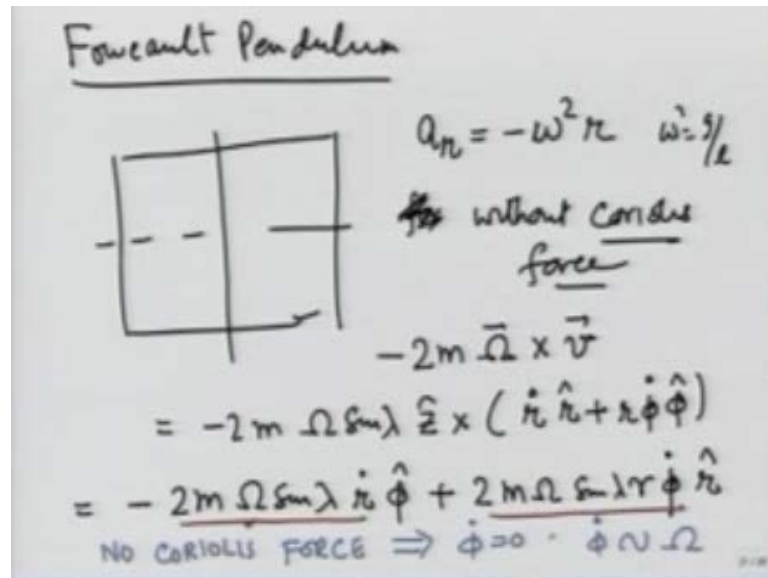 Foucault Pendulum
a_r = -ω² r ω² = g/l
without coriolis
force
-2m Ω⃗ × v⃗
= -2m Ω sinλ ẑ × ( ṙ r̂ + r φ̇ φ̂ )
= - 2m Ω sinλ ṙ φ̂ + 2m Ω sinλ r φ̇ r̂
NO CORIOLIS FORCE ⇒ φ̇ = 0 . φ̇ ~ Ω